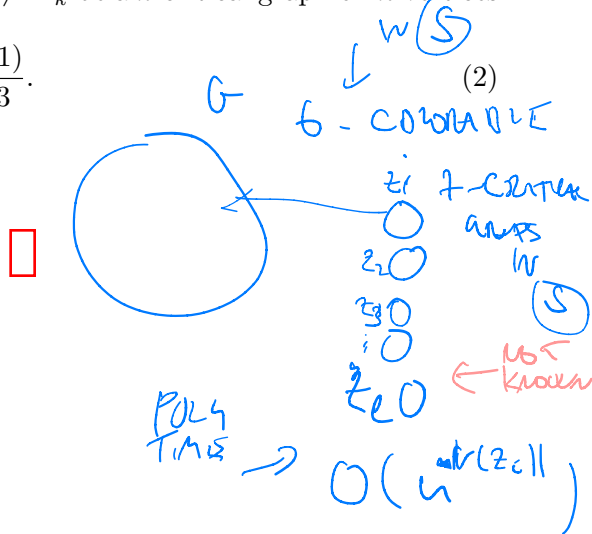 1)
3 .
(2)
IN S
G
6 - COLORABLE
Z1 7-CRITICAL
GRAPHS
Z2
IN
S
Z3
NOT
KNOWN
Zℓ
POLY
TIME
O(n^|V(Zi)|)